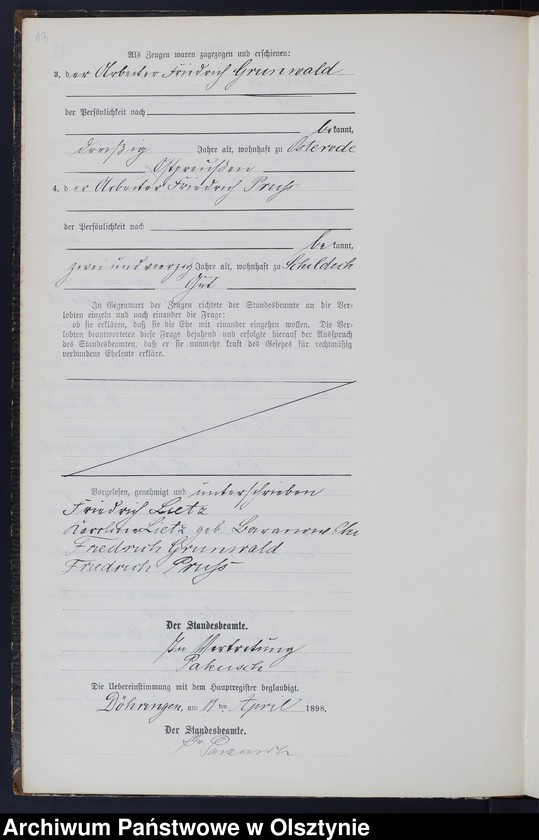 13
Als Zeugen waren zugezogen und erschienen:
3. der Arbeiter Friedrich Grunwald
der Persönlichkeit nach
bekannt,
dreißig Jahre alt, wohnhaft zu Osterode
Ostpreußen
4. der Arbeiter Friedrich Pruß
der Persönlichkeit nach
bekannt,
zwei und vierzig Jahre alt, wohnhaft zu Schildeck
Gut
In Gegenwart der Zeugen richtete der Standesbeamte an die Ver-
lobten einzeln und nach einander die Frage:
ob sie erklären, daß sie die Ehe mit einander eingehen wollen. Die Ver-
lobten beantworteten diese Frage bejahend und erfolgte hierauf der Ausspruch
des Standesbeamten, daß er sie nunmehr kraft des Gesetzes für rechtmäßig
verbundene Eheleute erkläre.
Vorgelesen, genehmigt und unterschrieben
Friedrich Lietz
Karoline Lietz geb. Baranowski
Friedrich Grunwald
Friedrich Pruß
Der Standesbeamte.
In Vertretung
Die Uebereinstimmung mit dem Hauptregister beglaubigt.
Döhringen, am 11ten April 1898.
Der Standesbeamte.
Archiwum Państwowe w Olsztynie